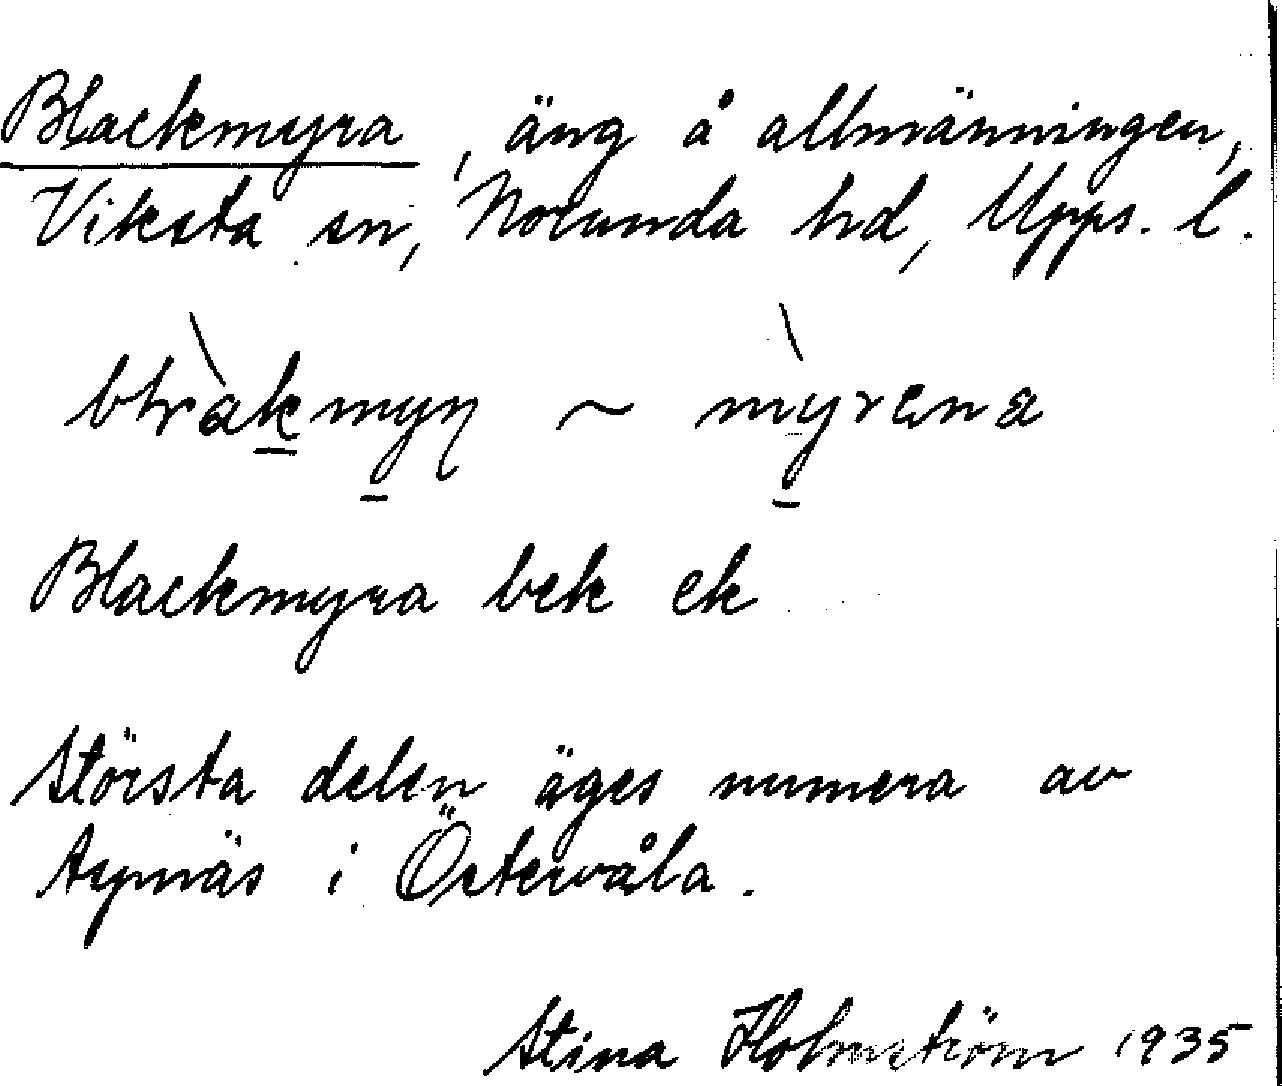 Blackmyra, äng å allmänningen,
Viksta sn, Norunda hd, Upps. l.
~ mỳrena
Blackmyra bek ek
Största delen äges numera av
Aspnäs i Östervåla.
Stina Holmström 1935